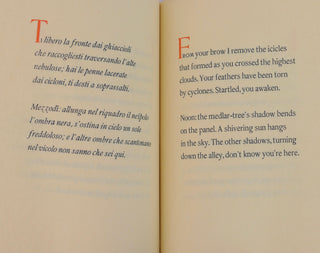 Ti libero la fronte dai ghiaccioli
che raccogliesti traversando l'alte
nebulose; hai le penne lacerate
dai cicloni, ti desti a soprassalti.
Mezzodì: allunga nel riquadro il nespolo
l'ombra nera, s'ostina in cielo un sole
freddoloso; e l'altre ombre che scantonano
nel vicolo non sanno che sei qui.
From your brow I remove the icicles
that formed as you crossed the highest
clouds. Your feathers have been torn
by cyclones. Startled, you awaken.
Noon: the medlar-tree's shadow bends
on the panel. A shivering sun hangs
in the sky. The other shadows, turning
down the alley, don't know you're here.